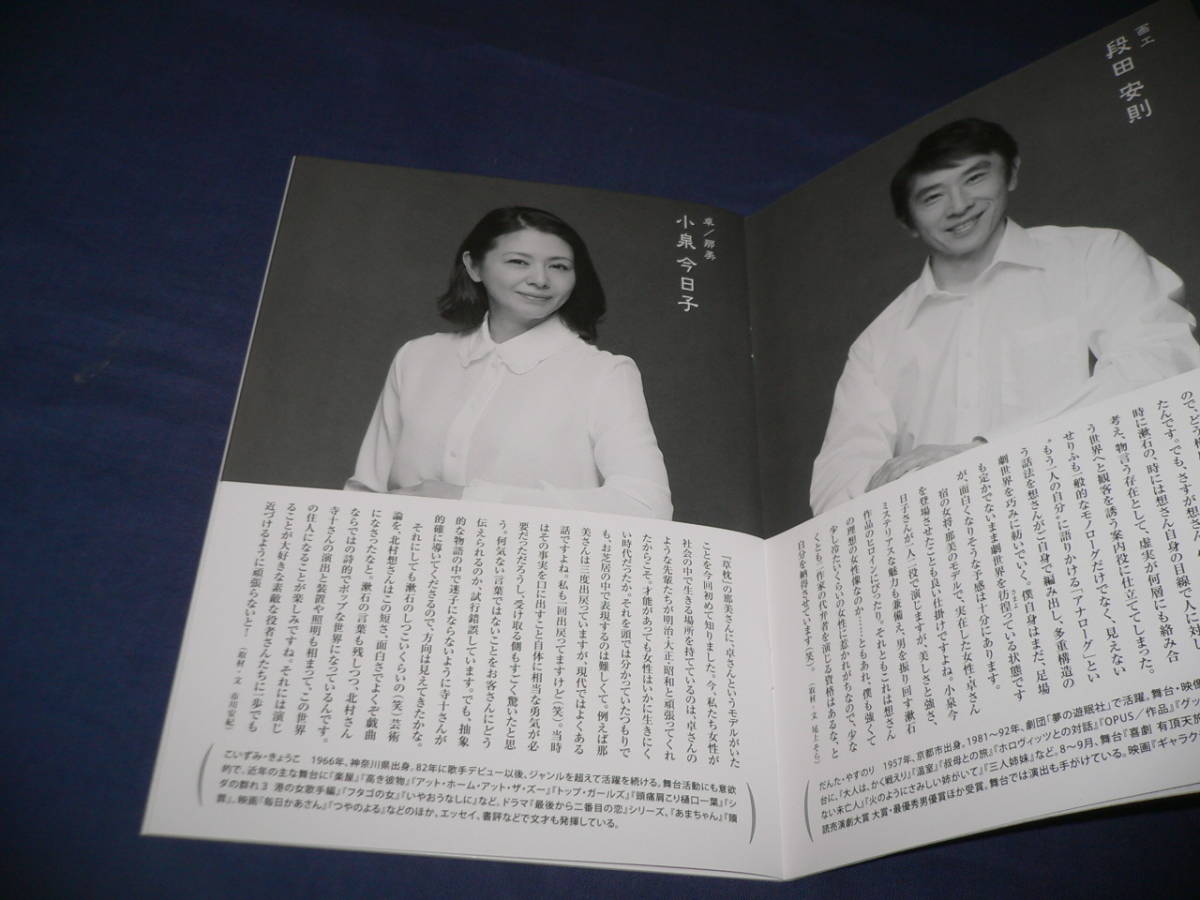 画工
段田 安則
ので、どう
たんです。でも、さすが想さん。
時に漱石の、時には想さん自身の目線で人に対し、
考え、物言う存在として、虚実が何層にも絡み合
う世界へと観客を誘う案内役に仕立ててしまった。
せりふも一般的なモノローグだけでなく、見えない
“もう一人の自分”に語りかける「アナローグ」とい
う話法を想さんがご自身で編み出し、多重構造の
劇世界を巧みに紡いでいく。僕自身はまだ、足場
も定かでないまま劇世界を彷徨っている状態です
さまよ
が、面白くなりそうな予感は十分にあります。
宿の女将・那美のモデルで、実在した女性・卓さん
を登場させたことも良い仕掛けですよね。小泉今
日子さんが二人一役で演じますが、美しさと強さ、
ミステリアスな魅力も兼備え、男を振り回す漱石
作品のヒロインにぴったり。それともこれは想さん
の理想の女性像なのか……ともあれ、僕も強くて
少し冷たいくらいの女性に惹かれがちなので、少な
くとも二作家の代弁者を演じる資格はあるな、と
自分を納得させています(笑)。
(取材・文 尾上そら)
だんた・やすのり 1957年、京都市出身。1981〜92年、劇団「夢の遊眠社」で活躍。舞台・映像
台に、『大人は、かく戦えり』『温室』『叔母との旅』『ホロヴィッツとの対話』『OPUS/作品』『グッ
ない未亡人』『火のようにさみしい姉がいて』『三人姉妹』など。8〜9月、舞台『喜劇 有頂天旅
読売演劇大賞 大賞・最優秀男優賞ほか受賞。舞台では演出も手がけている。映画『ギャラク
卓/那美
小泉 今日子
『草枕』の那美さんに、卓さんというモデルがいた
ことを今回初めて知りました。今、私たち女性が
社会の中で生きる場所を持てているのは、卓さんの
ような先輩たちが明治・大正・昭和と頑張ってくれ
たからこそ。才能があっても女性はいかに生きにく
い時代だったか。それを頭では分かっていたつもりで
も、お芝居の中で表現するのは難しくて。例えば那
美さんは三度出戻っていますが、現代ではよくある
話ですよね。私も一回出戻ってますけど(笑)。当時
はその事実を口に出すこと自体に相当な勇気が必
要だっただろうし、受け取る側もすごく驚いたと思
う。何気ない言葉ではないことをお客さんにどう
伝えられるのか、試行錯誤しています。でも、抽象
的な物語の中で迷子にならないように寺十さんが
的確に導いてくださるので、方向は見えてきたかな。
それにしても漱石のしつこいくらいの(笑)芸術
論を、北村想さんはこの短さ、面白さでよくぞ戯曲
になさったなと。漱石の言葉も残しつつ、北村さん
ならではの詩的でポップな世界になっているんです。
寺十さんの演出と装置や照明も相まって、この世界
の住人になることが楽しみですね。それには演じ
ることが大好きな素敵な役者さんたちに一歩でも
近づけるように頑張らないと！
(取材・文 市川安紀)
こいずみ・きょうこ 1966年、神奈川県出身。82年に歌手デビュー以後、ジャンルを超えて活躍を続ける。舞台活動にも意欲
的で、近年の主な舞台に『楽屋』『高き彼物』『アット・ホーム・アット・ザ・ズー』『トップ・ガールズ』『頭痛肩こり樋口一葉』『シ
ダの群れ3 港の女歌手編』『フタゴの女』『いやおうなしに』など。ドラマ『最後から二番目の恋』シリーズ、『あまちゃん』『贖
罪』、映画『毎日かあさん』『つやのよる』などのほか、エッセイ、書評などで文才も発揮している。